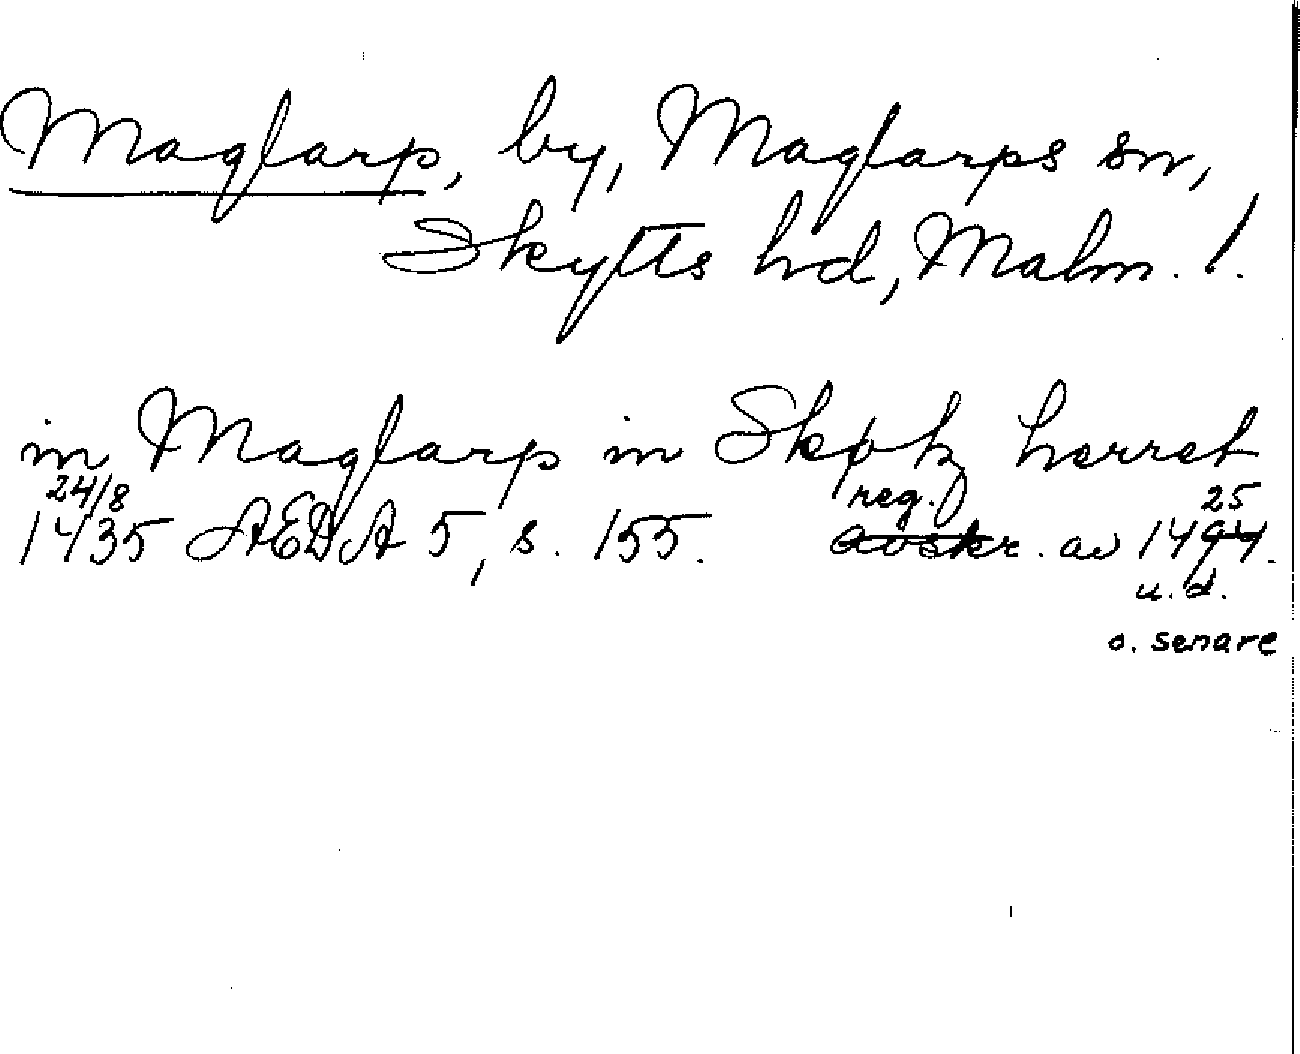 Maglarp, by, Maglarps sn,
Skytts hd, Malm. l.
in Maglarp in Skptz herret
24/8 reg. 25
1435 ÆDA 5, s. 155. avskr. av 1494.
u. d.
o. senare